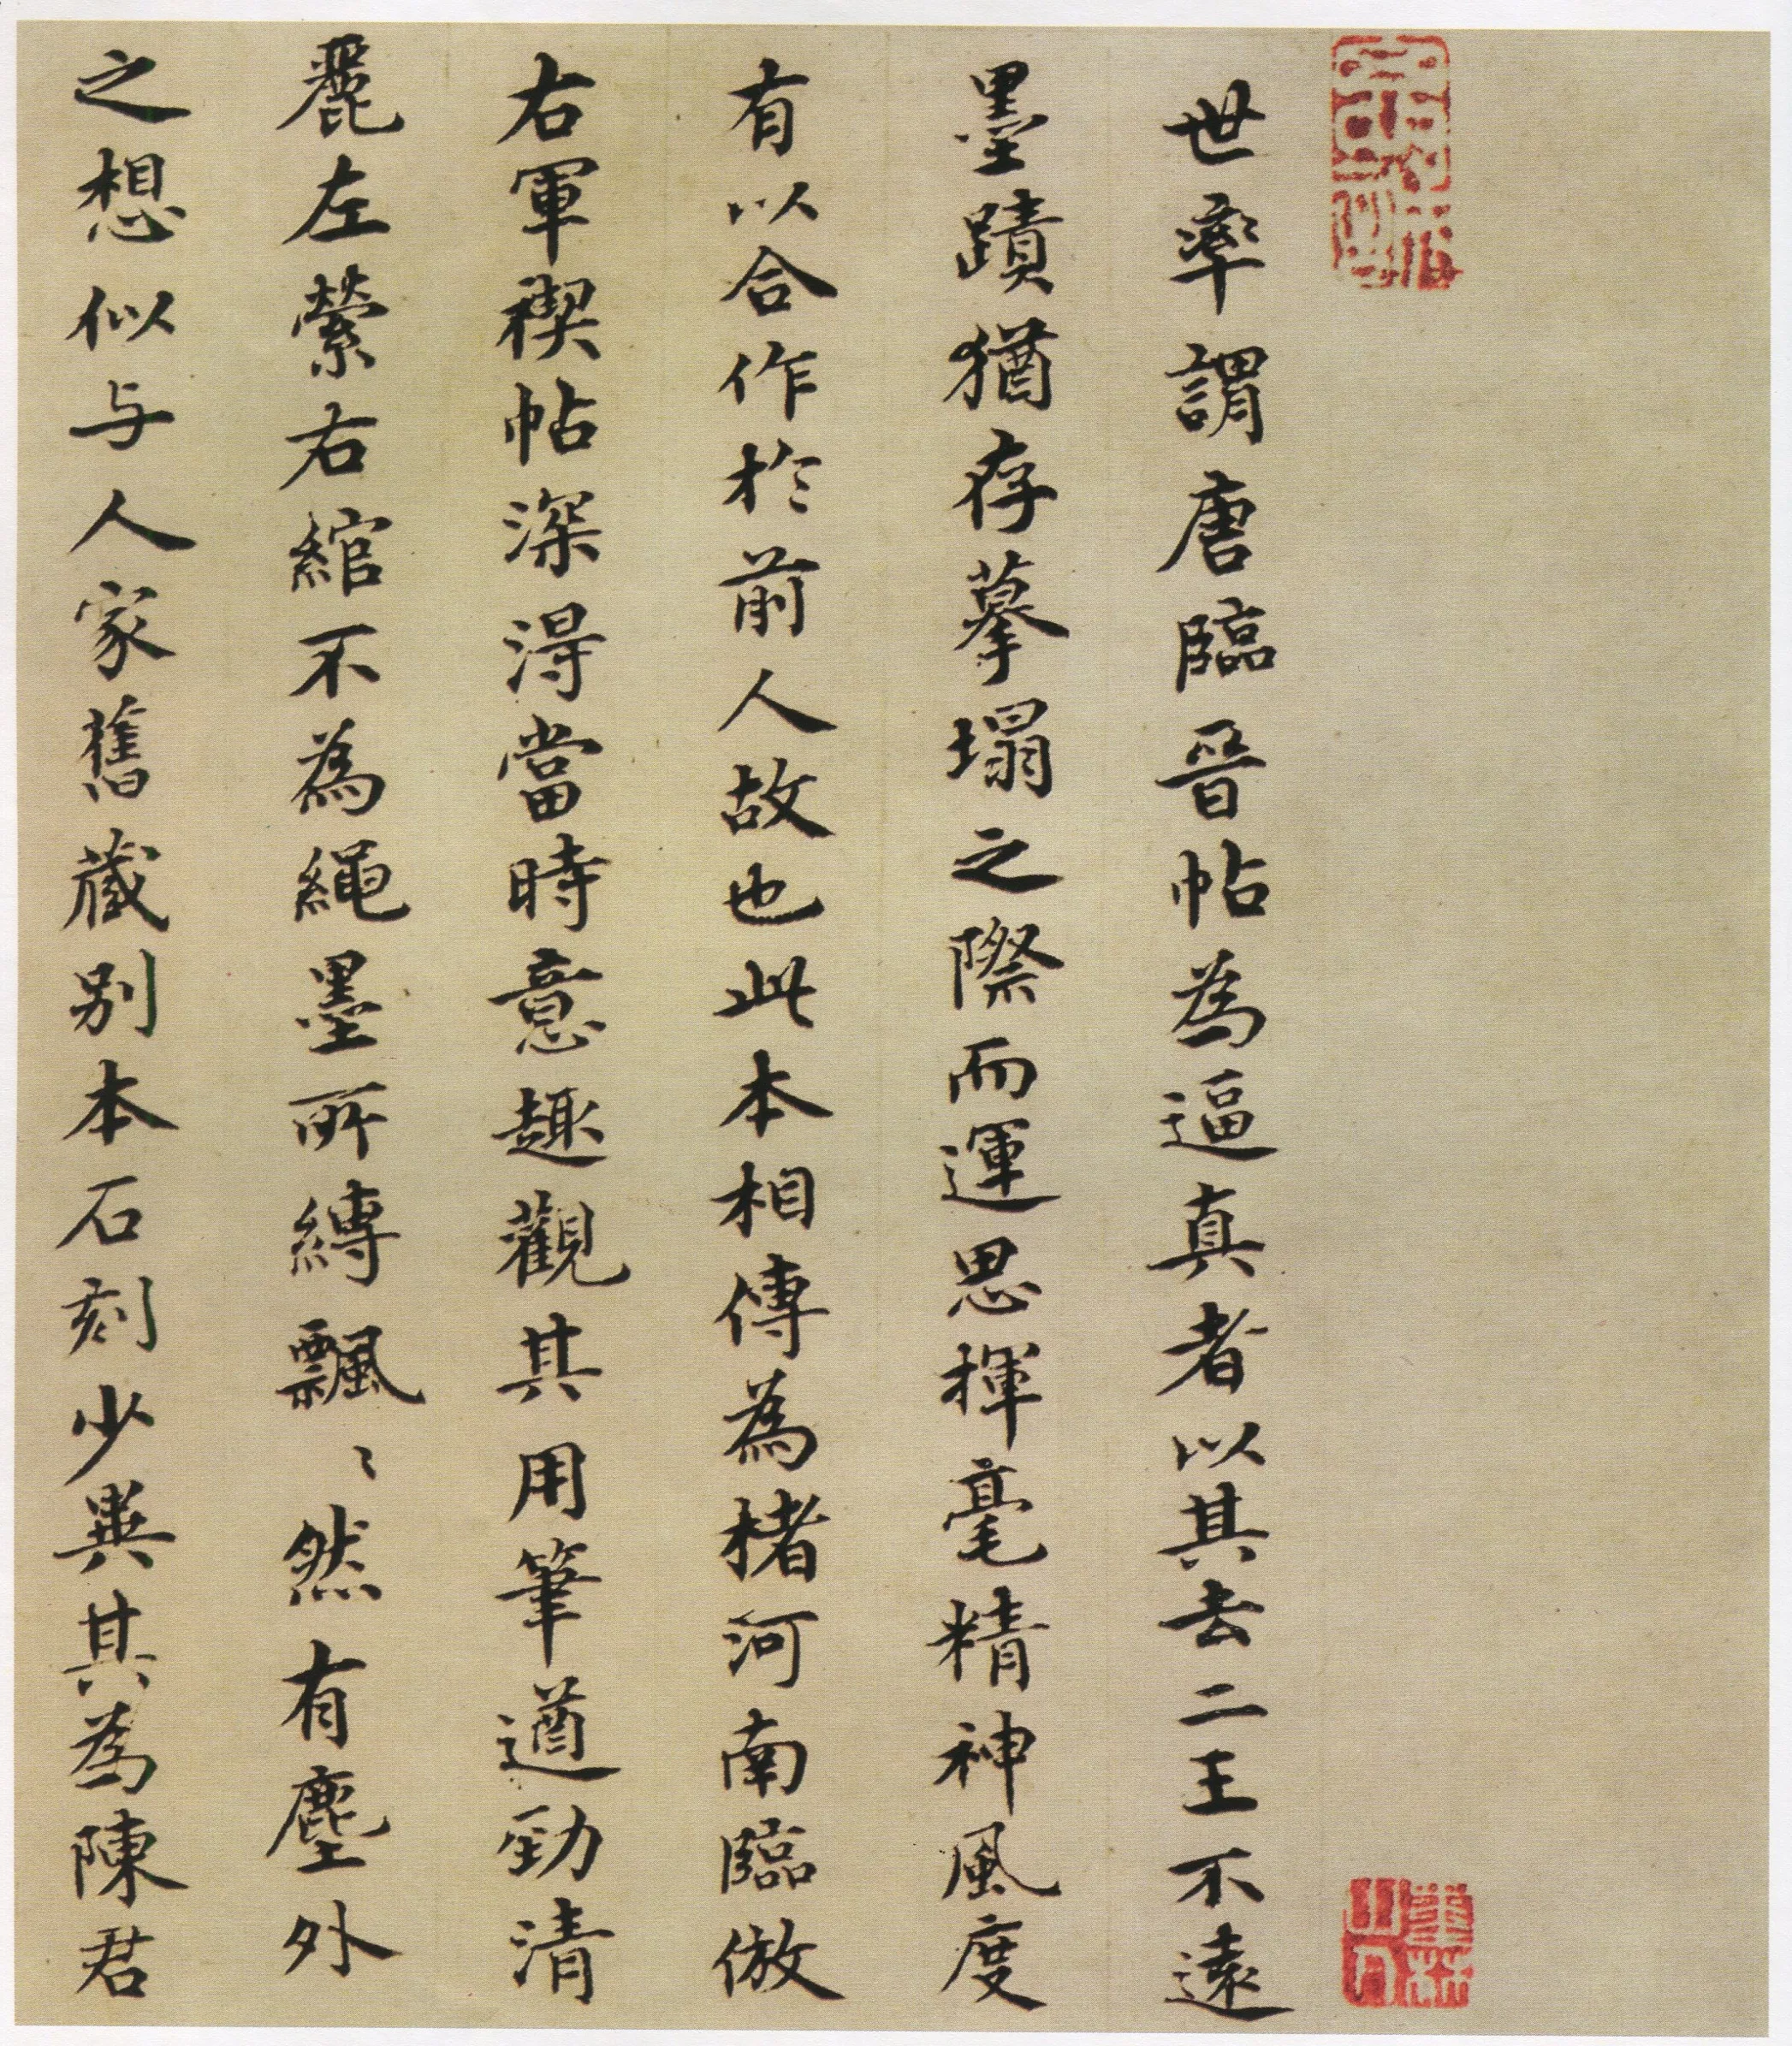 世率謂唐臨晉帖為逼真者以其去二王不遠
墨蹟猶存摹塌之際而運思揮毫精神風度
有以合作於前人故也此本相傳為楮河南臨倣
右軍禊帖深得當時意趣觀其用筆遒勁清
麗左縈右綰不為繩墨所縛飄〻然有塵外
之想似与人家舊藏別本石刻少異其為陳君